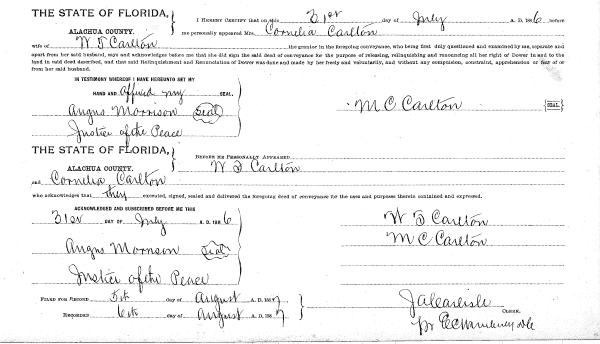 THE STATE OF FLORIDA,
ALACHUA COUNTY.
I HEREBY CERTIFY that on this 31st day of July A. D. 1886, before
me personally appeared Mrs. Cornelia Carlton
wife of W T Carlton the grantor in the foregoing conveyance, who being first duly questioned and examined by me, separate and
apart from her said husband, says and acknowledges before me that she did sign the said deed of conveyance for the purpose of releasing, relinquishing and renouncing all her right of Dower in and to the
land in said deed described, and that said Relinquishment and Renunciation of Dower was done and made by her freely and voluntarily, and without any compulsion, constraint, apprehension or fear of or
from her said husband.
IN TESTIMONY WHEREOF I HAVE HEREUNTO SET MY
HAND AND Affixed my SEAL.
Angus Morrison Seal
Justice of the Peace
M C Carlton SEAL
THE STATE OF FLORIDA,
ALACHUA COUNTY.
BEFORE ME PERSONALLY APPEARED
W T Carlton
and Cornelia Carlton
who acknowledges that they executed, signed, sealed and delivered the foregoing deed of conveyance for the uses and purposes therein contained and expressed.
ACKNOWLEDGED AND SUBSCRIBED BEFORE ME THIS
31st DAY OF July A. D. 1886
Angus Morrison Seal
Justice of the Peace
W T Carlton
M C Carlton
FILED FOR RECORD 5th day of August A. D. 1887
RECORDED 6th day of August A. D. 1887
J A Carlisle
CLERK.